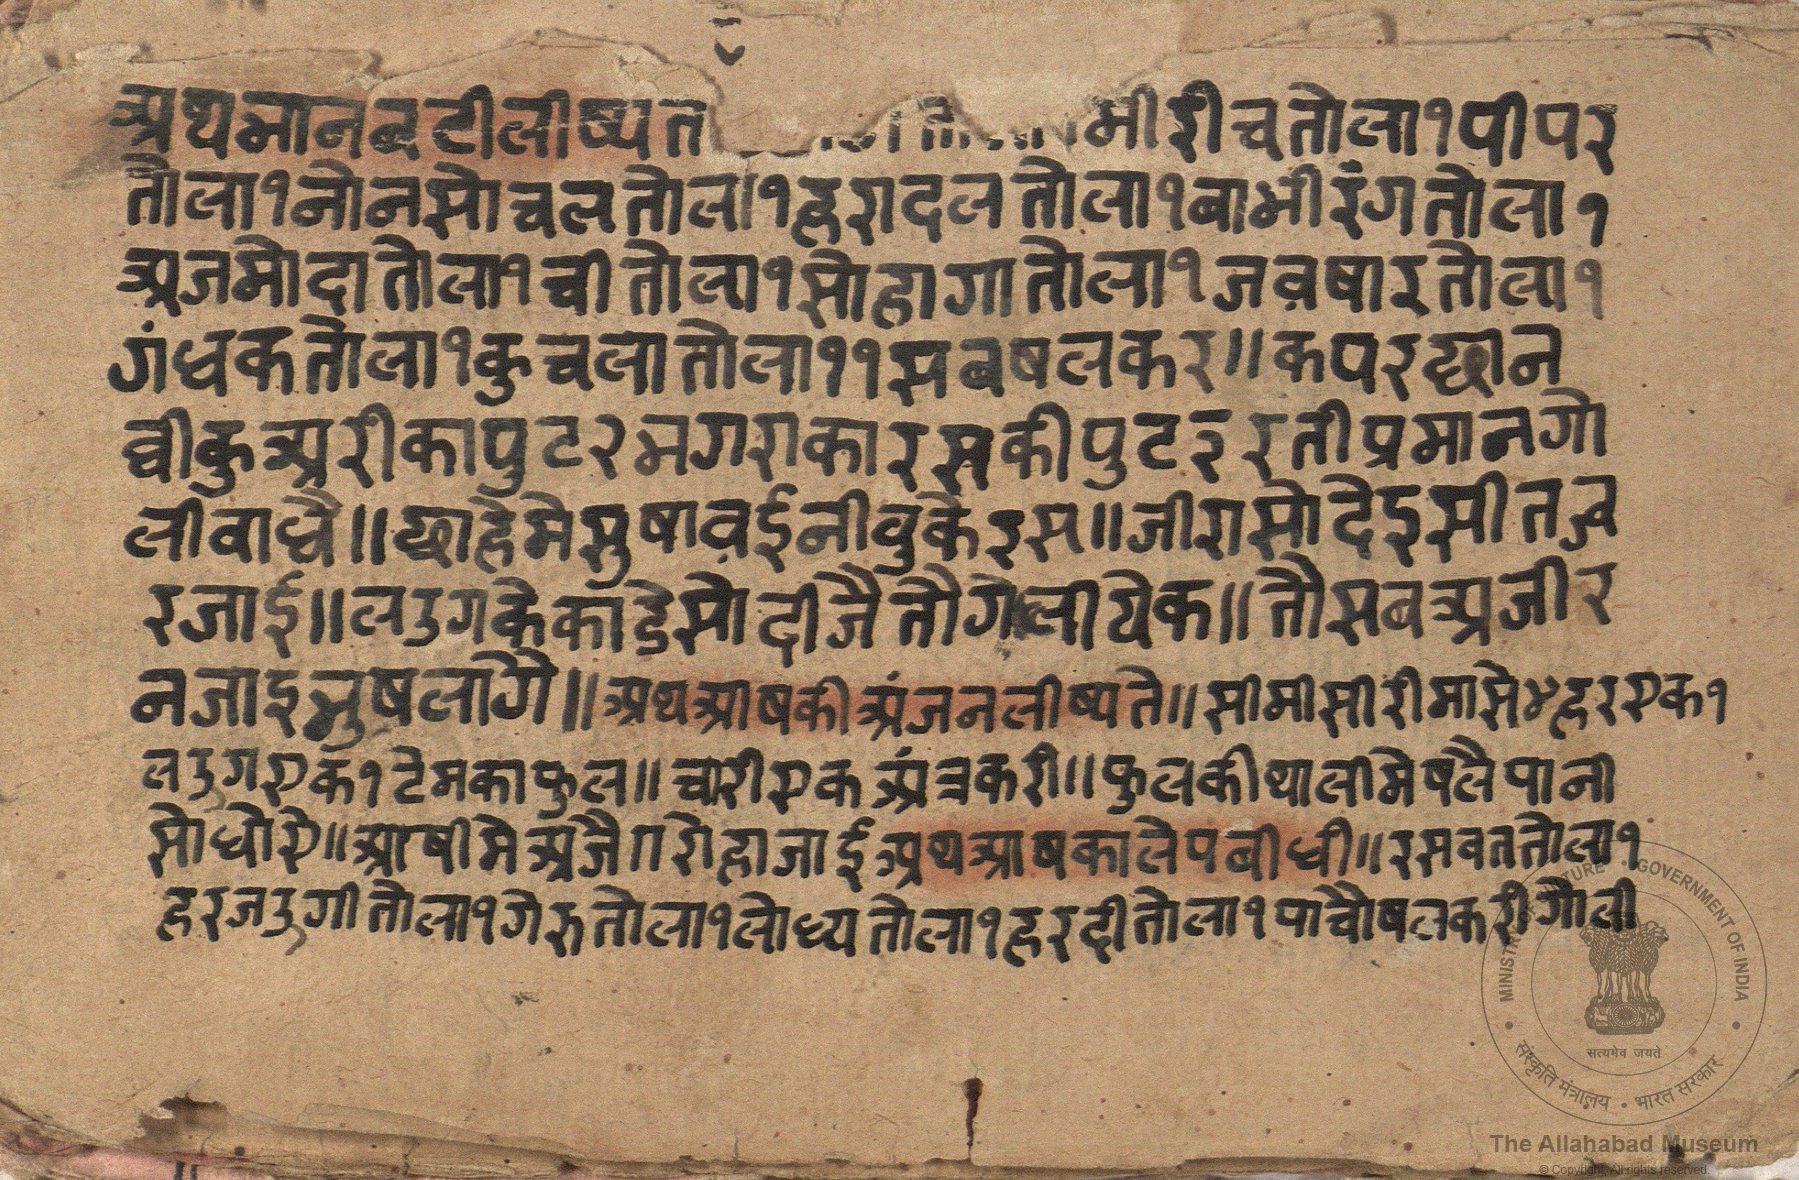 अथमानबटीलीष्यत मीरीचतोला१पीपर
तोला१नोनसोचलतोला१हरादलतोला१बाभीरंगतोला१
अजमोदातोला१चीतोला१सोहागातोला१जव़षारतोला१
गंधकतोला१कुचलातोला११सबषलकर॥कपरछान
घीकुअरीकापुट२मगराकारसकीपुट३रतीप्रमानगो
लीवाधै॥छाहैमेसुषाव़ईनीवुकेइस॥जीरासोदेइसीतज्व
रजाई॥लउगकेकाडेसोदीजैतौगोलीयेक॥तौसबअजीर
नजाइभुषलागे॥अथआषकीअंजनलीष्यते॥सीमीसीरीमासे४हरएक१
लउगएक१टेमकाफुल॥चारीएकअंत्रकरी॥फुलकीथालीमेषलैपानी
सोधोए॥आषीमेअजैगरोहाजाईअथआषकालेपबीधी॥रसवततोला१
हरजउगीतोला१गेरुतोला१लोध्यतोला१हरदीतोला१पाचौषलकरीगोली
MINISTRY OF CULTURE • GOVERNMENT OF INDIA
सत्यमेव जयते
संस्कृति मंत्रालय • भारत सरकार
The Allahabad Museum
© Copyright. All rights reserved.